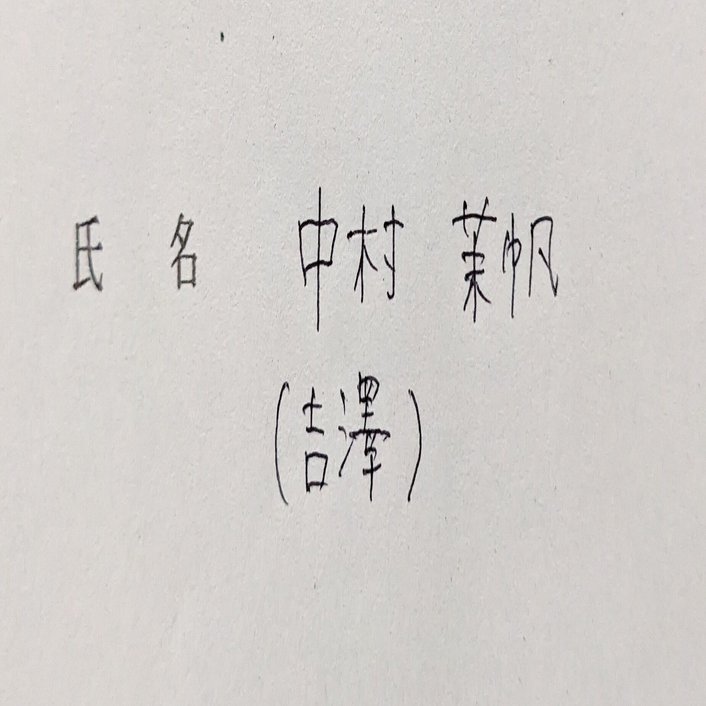 氏 名 中村 茉帆
(吉澤)